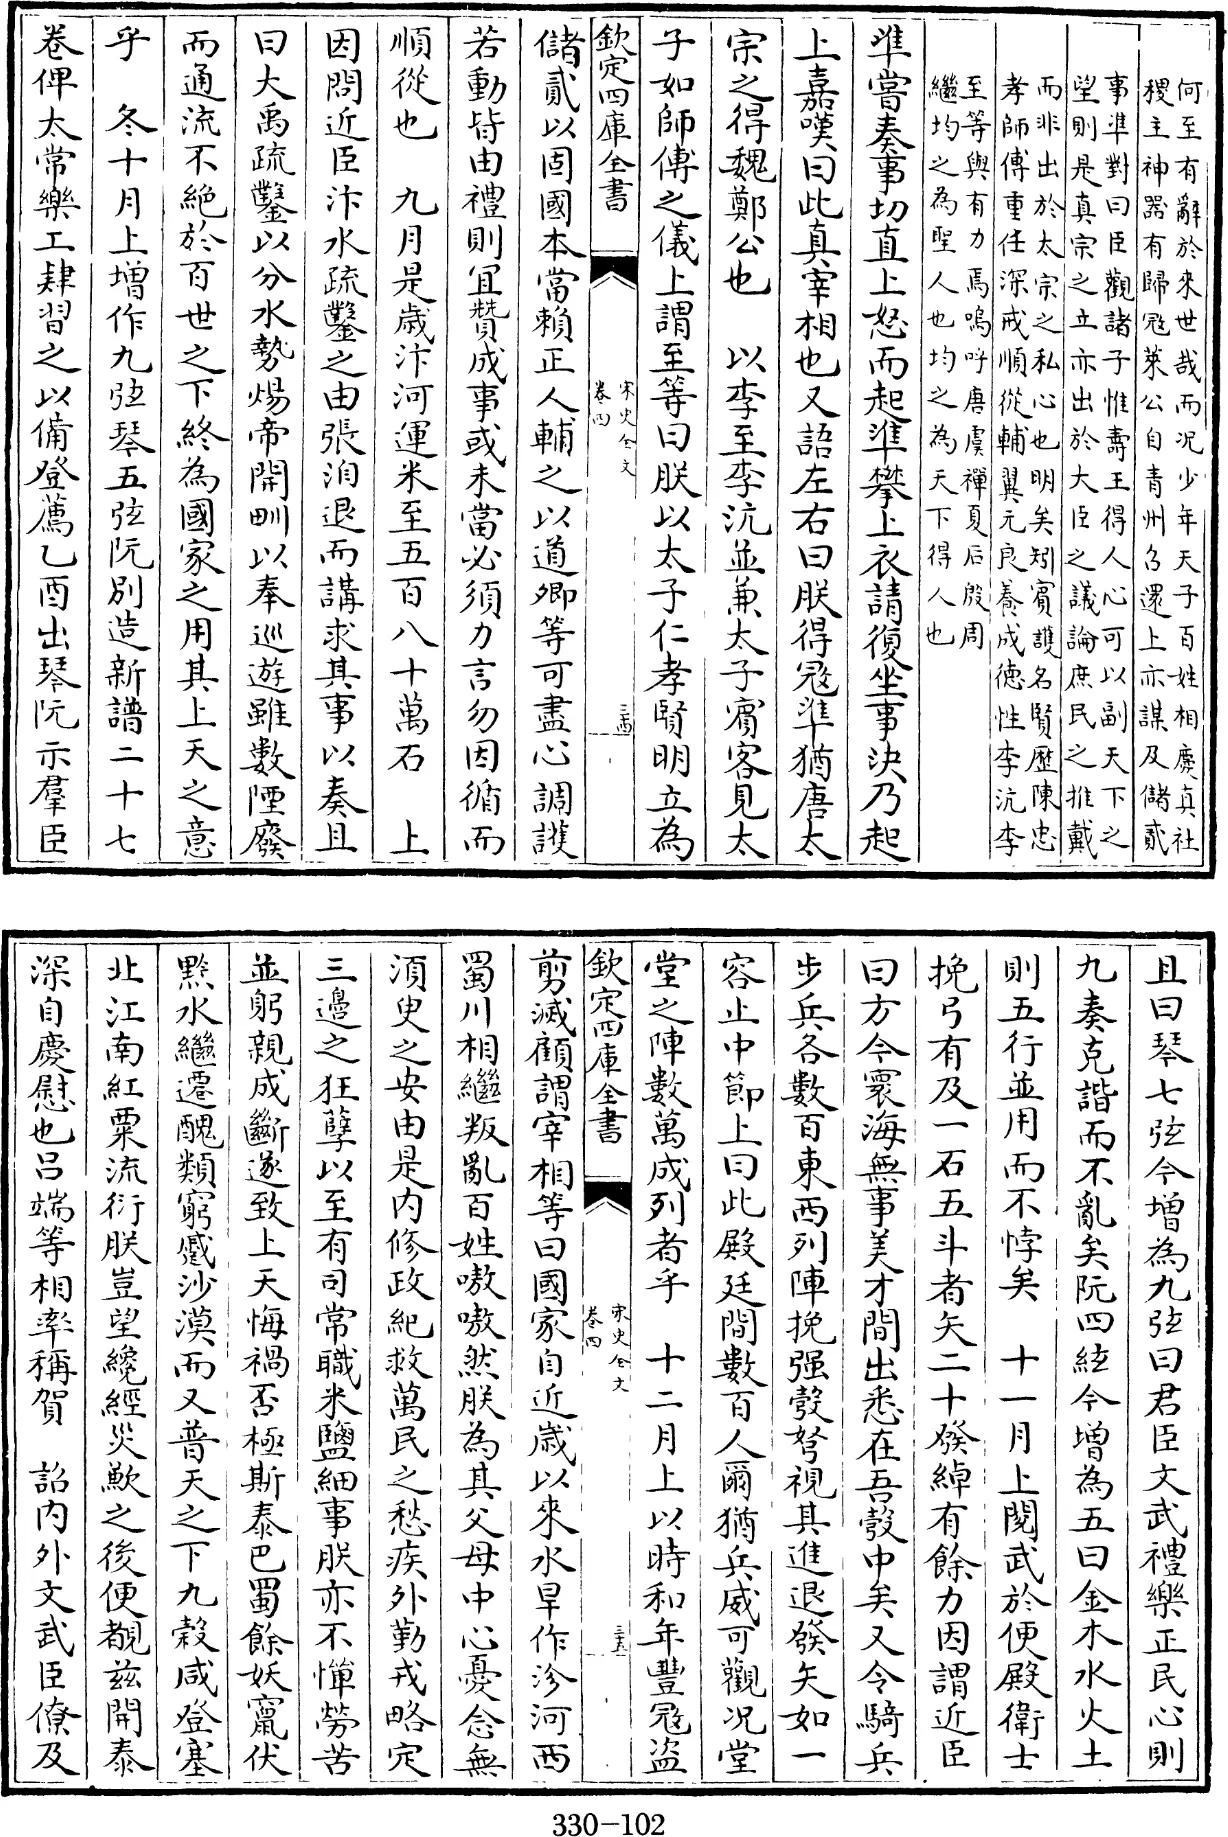 何至有辭於來世哉而况少年天子百姓相慶真社
稷主神器有歸冦萊公自青州召還上亦謀及儲貳
事準對曰臣觀諸子惟壽王得人心可以副天下之
望則是真宗之立亦出於大臣之議論庶民之推戴
而非出於太宗之私心也明矣矧賓護名賢歷陳忠
孝師傅重任深戒順從輔翼元良養成徳性李沆李
至等與有力焉嗚呼唐虞禪夏后殷周
繼均之為聖人也均之為天下得人也
準嘗奏事切直上怒而起準攀上衣請復坐事決乃起
上嘉嘆曰此真宰相也又語左右曰朕得冦準猶唐太
宗之得魏鄭公也　以李至李沆並兼太子賓客見太
子如師傅之儀上謂至等曰朕以太子仁孝賢明立為
欽定四庫全書
宋史全文
卷四
三四
儲貳以固國本當賴正人輔之以道卿等可盡心調護
若動皆由禮則宜贊成事或未當必須力言勿因循而
順從也　九月是歳汴河運米至五百八十萬石　上
因問近臣汴水疏鑿之由張洎退而講求其事以奏且
曰大禹疏鑿以分水勢煬帝開甽以奉巡遊雖數陻廢
而通流不絶於百世之下終為國家之用其上天之意
乎　冬十月上增作九弦琴五弦阮别造新譜二十七
卷俾太常樂工肄習之以備登薦乙酉出琴阮示羣臣
且曰琴七弦今增為九弦曰君臣文武禮樂正民心則
九奏克諧而不亂矣阮四絃今增為五曰金木水火土
則五行並用而不悖矣　十一月上閲武於便殿衛士
挽弓有及一石五斗者矢二十發綽有餘力因謂近臣
曰方今寰海無事美才間出悉在吾彀中矣又令騎兵
步兵各數百東西列陣挽强彀弩視其進退發矢如一
容止中節上曰此殿廷間數百人爾猶兵威可觀况堂
堂之陣數萬成列者乎　十二月上以時和年豐冦盗
欽定四庫全書
宋史全文
卷四
三五
剪滅顧謂宰相等曰國家自近歳以來水旱作沴河西
蜀川相繼叛亂百姓嗷嗷然朕為其父母中心憂念無
須臾之安由是内修政紀救萬民之愁疾外勤戎略定
三邉之狂孽以至有司常職米鹽細事朕亦不憚勞苦
並躬親成斷遂致上天悔禍否極斯泰巴蜀餘妖竄伏
黔水繼遷醜類窮蹙沙漠而又普天之下九榖咸登塞
北江南紅粟流衍朕豈望纔經災歉之後便覩兹開泰
深自慶慰也吕端等相率稱賀　詔内外文武臣僚及
330-102